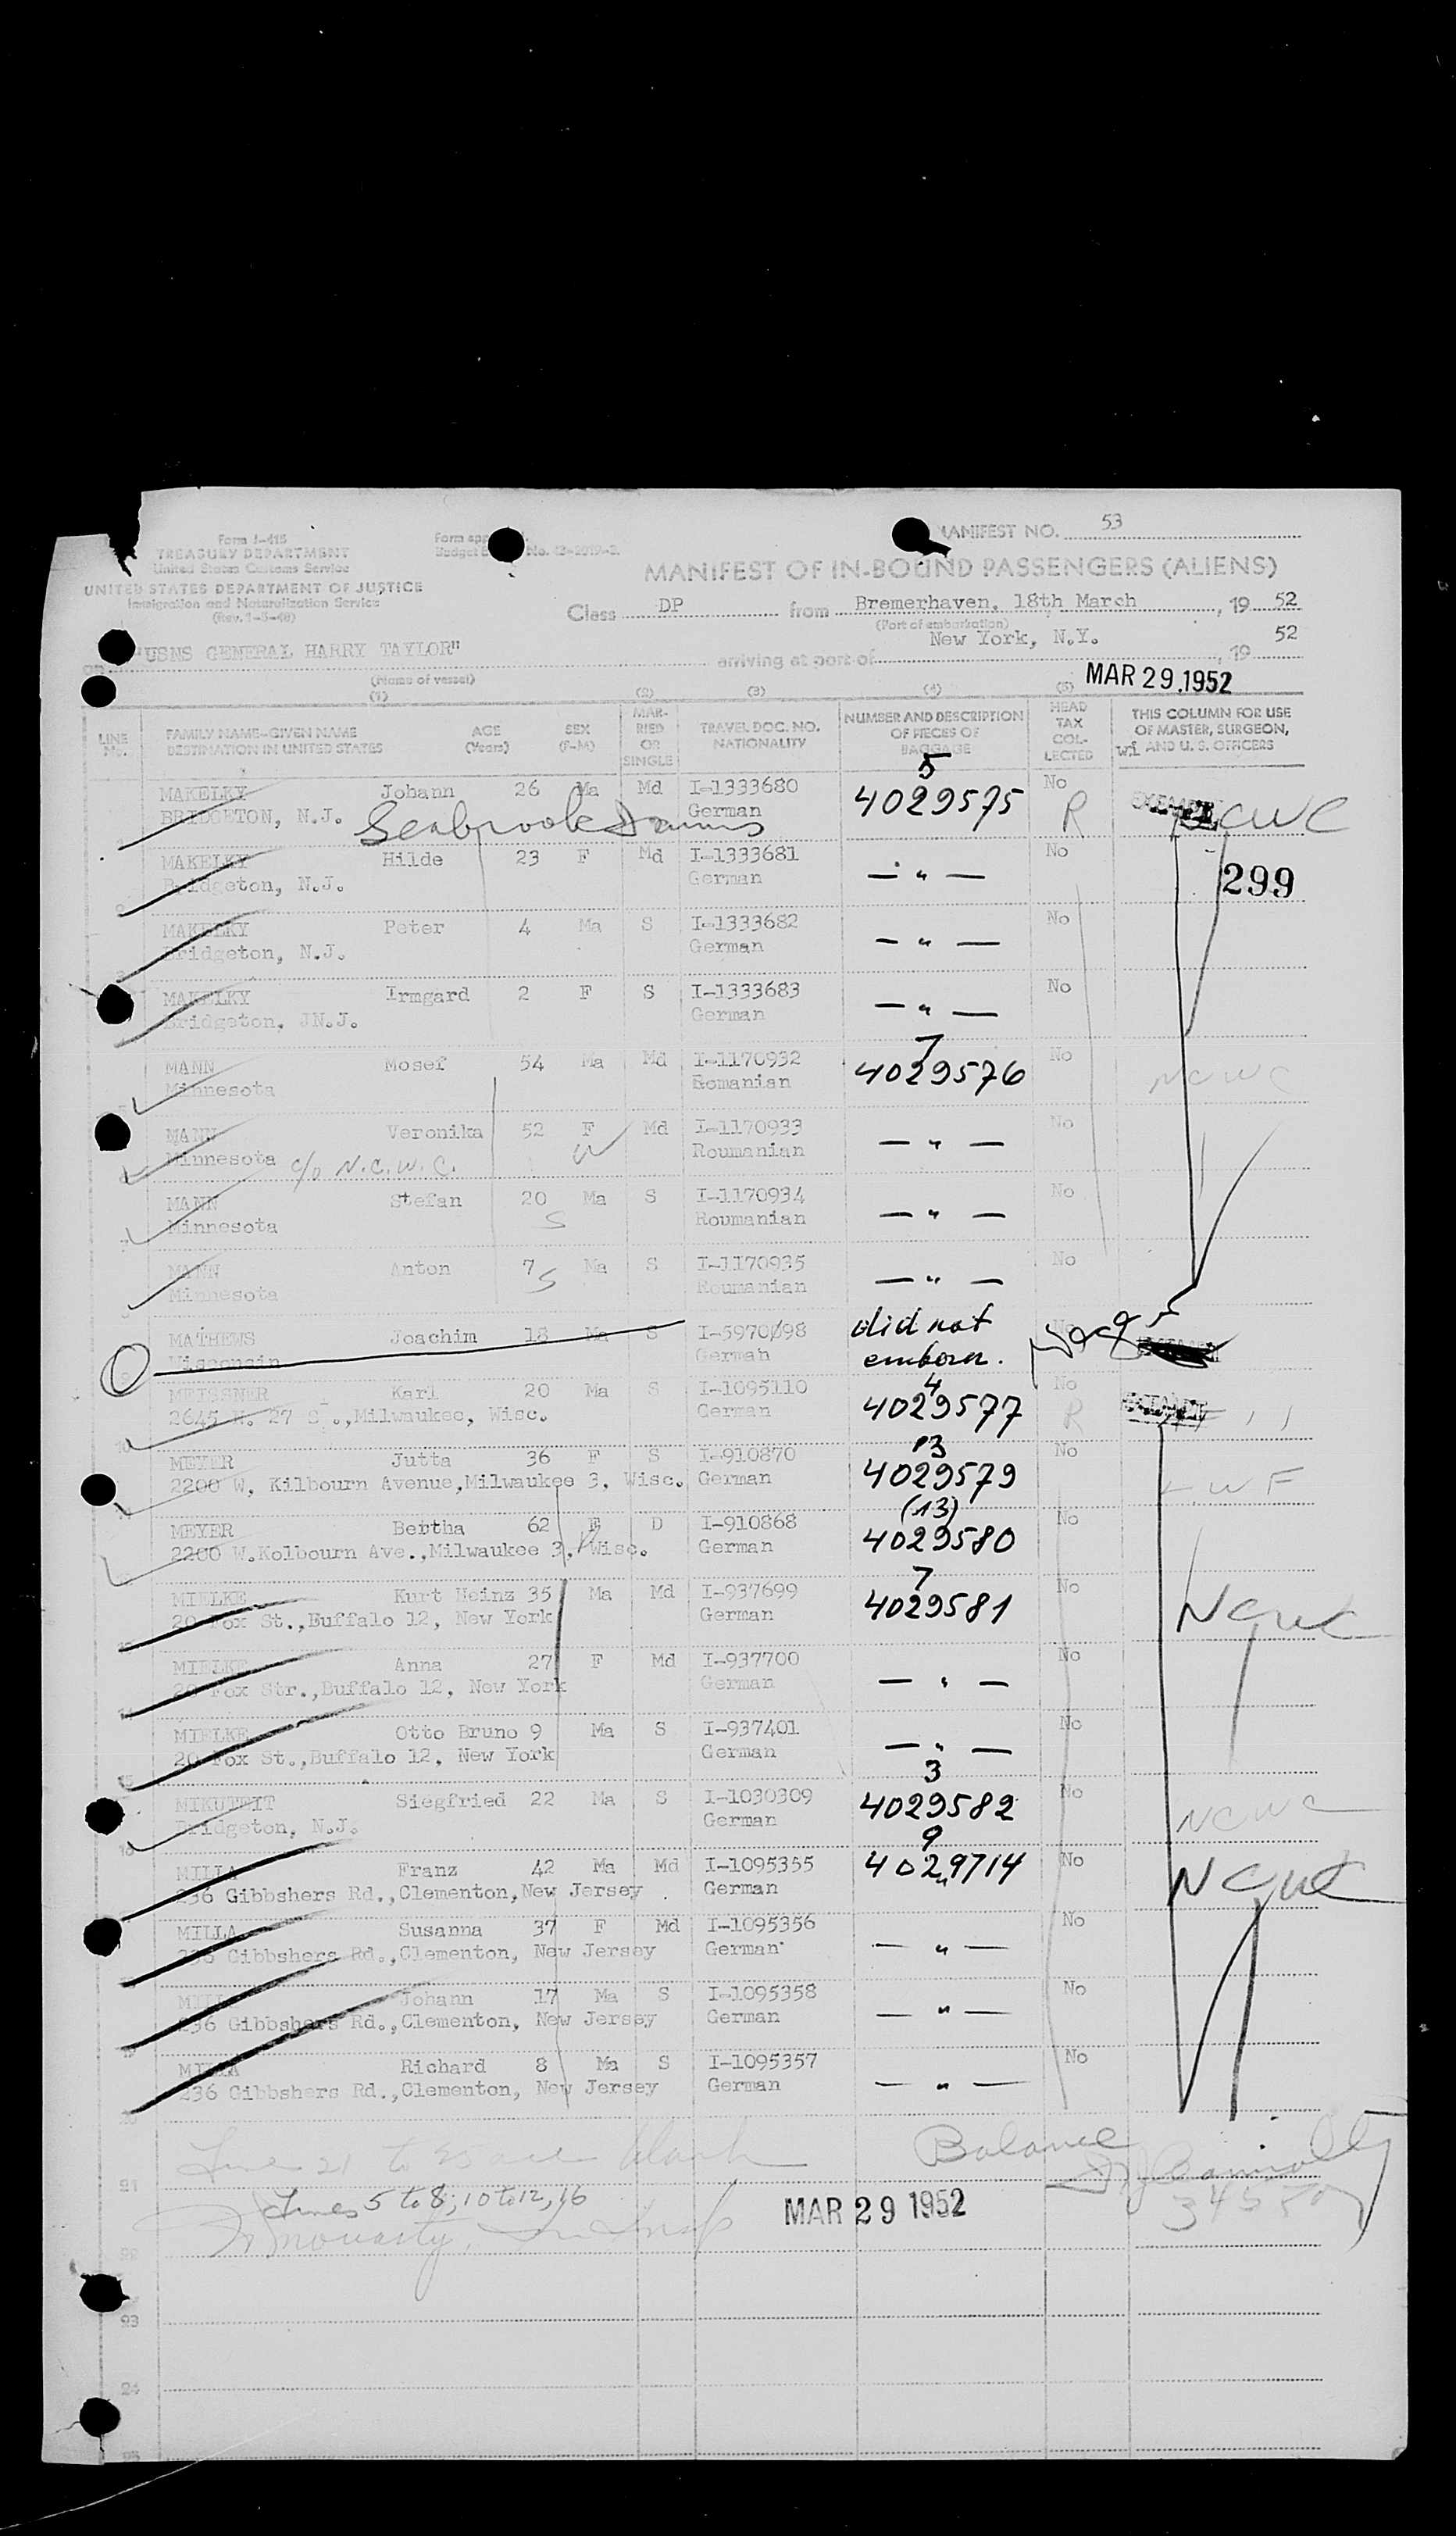 Form I-415
TREASURY DEPARTMENT
United States Customs Service
UNITED STATES DEPARTMENT OF JUSTICE
Immigration and Naturalization Service
(Rev. 1-5-48)
Form app
Budget B No. 43-R019-2.
MANIFEST NO. 53
MANIFEST OF IN-BOUND PASSENGERS (ALIENS)
Class DP from Bremerhaven, 18th March, 19 52
(Port of embarkation)
"USNS GENERAL HARRY TAYLOR" arriving at port of New York, N.Y., 19 52
(Name of vessel)
MAR 29.1952
(1) (2) (3) (4) (5)
LINE No. FAMILY NAME-GIVEN NAME DESTINATION IN UNITED STATES AGE (Years) SEX (F-M) MARRIED OR SINGLE TRAVEL DOC. NO. NATIONALITY NUMBER AND DESCRIPTION OF PIECES OF BAGGAGE HEAD TAX COLLECTED THIS COLUMN FOR USE OF MASTER, SURGEON, AND U. S. OFFICERS
5
MAKELKY Johann 26 Ma Md I-1333680 4029575 No
BRIDGETON, N.J. Seabrook German R NCWC
MAKELKY Hilde 23 F Md I-1333681 — " — No
Bridgeton, N.J. German 299
MAKELKY Peter 4 Ma S I-1333682 — " — No
Bridgeton, N.J. German
MAKELKY Irmgard 2 F S I-1333683 — " — No
Bridgeton, JN.J. German
7
MANN Mosef 54 Ma Md I-1170932 4029576 No
Minnesota Romanian NCWC
MANN Veronika 52 F Md I-1170933 — " — No
Minnesota c/o N.C.W.C. Roumanian
MANN Stefan 20 Ma S I-1170934 — " — No
Minnesota S Roumanian
MANN Anton 7 Ma S I-1170935 — " — No
Minnesota S Roumanian
MATHEWS Joachim 18 Ma S I-5970098 did not No
Wisconsin German
4
MEISSNER Karl 20 Ma S I-1095110 4029577 No
2645 N. 27 St.,Milwaukee, Wisc. German R
3
MEYER Jutta 36 F S I-910870 4029579 No
2200 W, Kilbourn Avenue,Milwaukee 3, Wisc. German LWF
(13)
MEYER Bertha 62 F D I-910868 4029580 No
2200 W.Kolbourn Ave.,Milwaukee 3, Wisc. German
7
MIELKE Kurt Heinz 35 Ma Md I-937699 4029581 No
20 Fox St.,Buffalo 12, New York German NCWC
MIELKE Anna 27 F Md I-937700 — " — No
20 Fox Str.,Buffalo 12, New York German
MIELKE Otto Bruno 9 Ma S I-937401 — " — No
20 Fox St.,Buffalo 12, New York German
3
MIKUTEIT Siegfried 22 Ma S I-1030309 4029582 No
Bridgeton, N.J. German NCWC
9
MILLA Franz 42 Ma Md I-1095355 4029714 No
236 Gibbshers Rd.,Clementon,New Jersey German NCWC
MILLA Susanna 37 F Md I-1095356 — " — No
236 Gibbshers Rd.,Clementon, New Jersey German
MILLA Johann 17 Ma S I-1095358 — " — No
236 Gibbshers Rd.,Clementon, New Jersey German
MILLA Richard 8 Ma S I-1095357 — " — No
236 Gibbshers Rd.,Clementon, New Jersey German
Lines 21 to 25 are blank Balance
21
Lines 5 to 8, 10 to 12, 16
MAR 29 1952
22
23
24
25